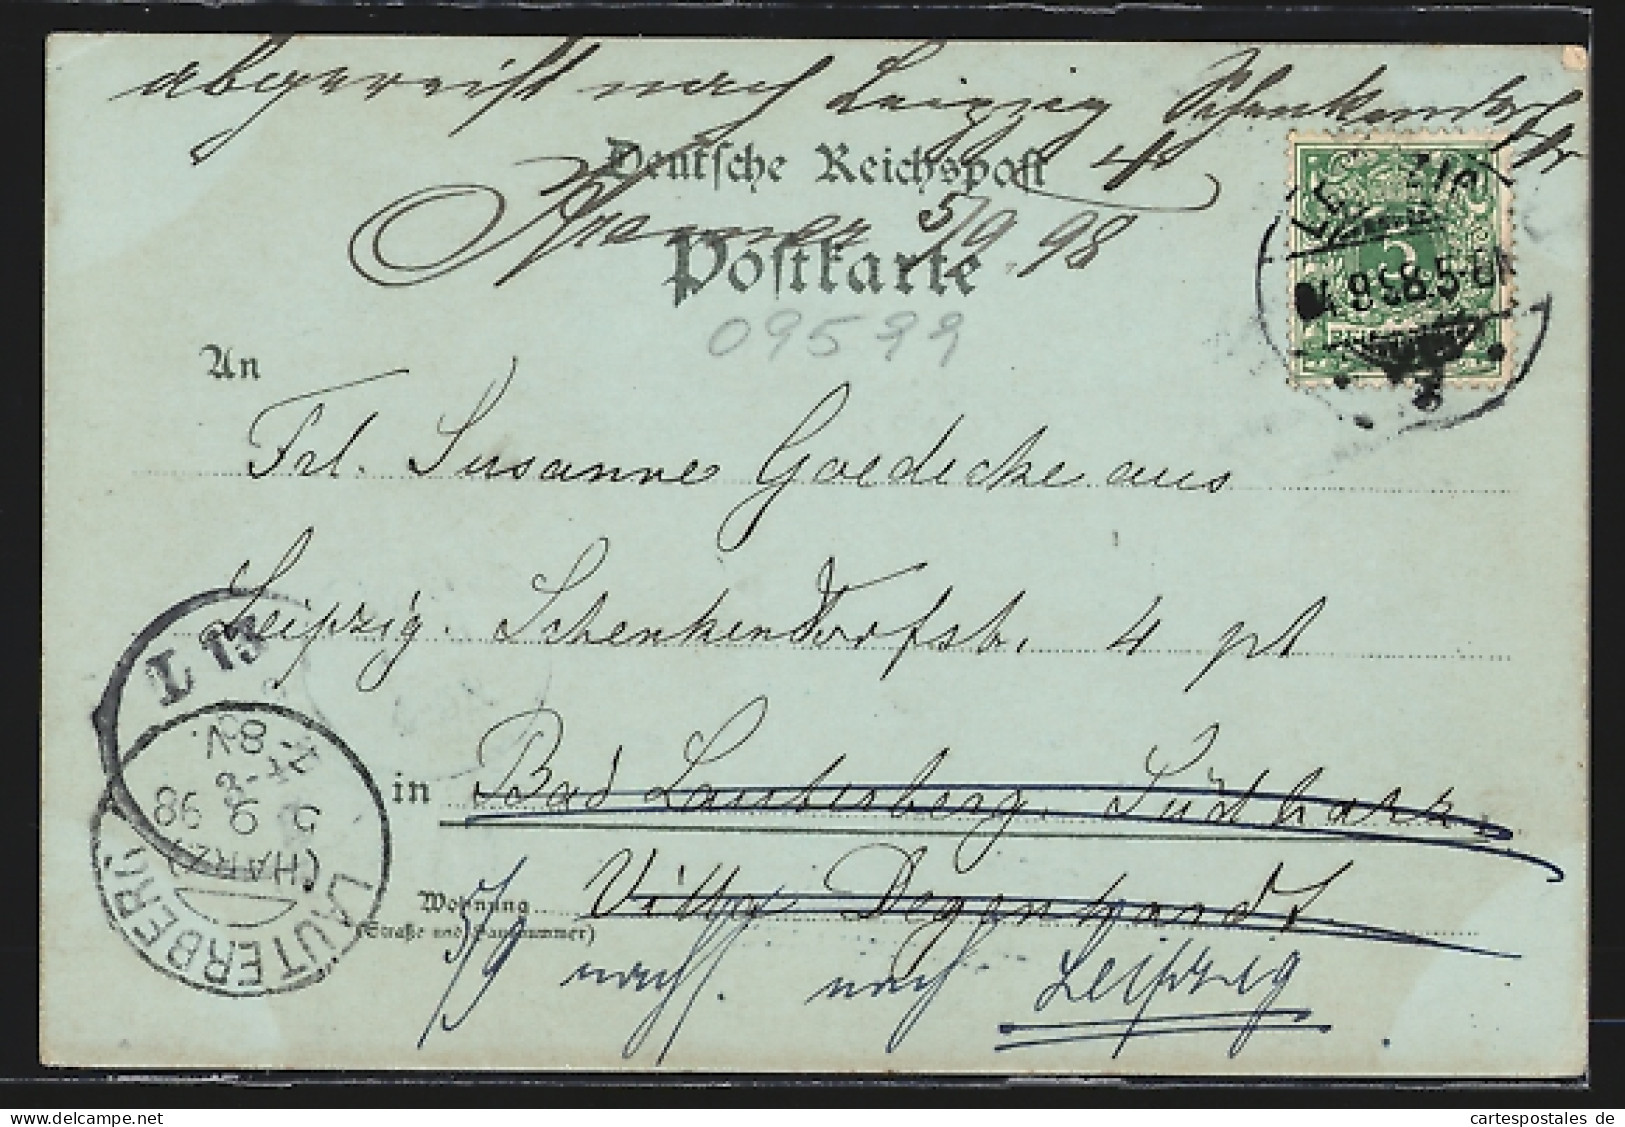 abgereist nach Leipzig Schenkendorfstr
Deutsche Reichspost 4
Kramer 5/9 98
Postkarte
09599
LEIPZIG
4.9.98.5-6N
3
5
REICHSPOST
An
Frl. Susanne Goedecke aus
Leipzig. Schenkendorfstr. 4 pt
L 13
in Bad Lauterberg. Südharz.
Wohnung Villa Degenhardt
(Straße und Hausnummer)
5/9 nachs. nach Leipzig
LAUTERBERG
(HARZ)
5 9 98
7-8V.
cartespostales de